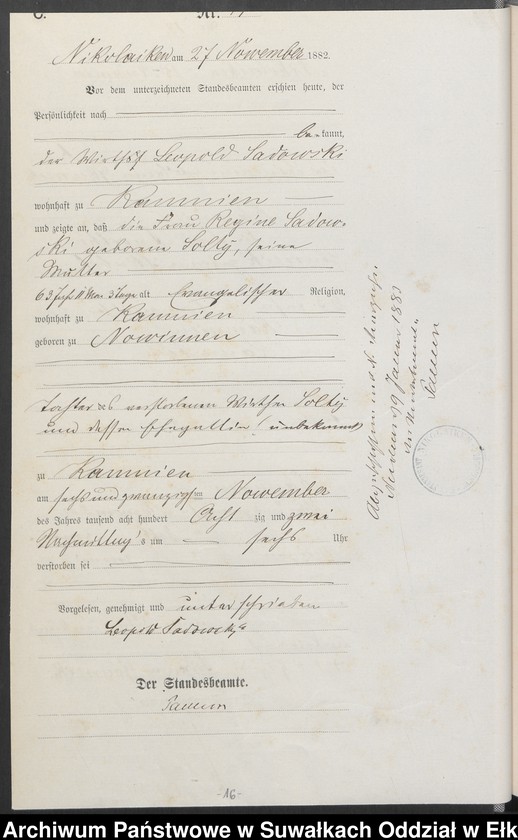 C.
Nr.
Nikolaiken am 27 November 1882
Vor dem unterzeichneten Standesbeamten erschien heute, der
Persönlichkeit nach
bekannt,
der Wirth Leopold Sadowski
wohnhaft zu Kamnien
und zeigte an, daß die Frau Regine Sadow-
ski geborene Solty, seine
Mutter
63 Jahr 11 Mon. 3 Tage alt Evangelischer Religion,
wohnhaft zu Kamnien
geboren zu Nowinnen
Tochter des verstorbenen Wirthen Solty
und dessen Ehegattin unbekannt
zu Kamnien
am sechs und zwanzigsten November
des Jahres tausend acht hundert Acht zig und zwei
Nachmittag's um sechs Uhr
verstorben sei
Vorgelesen, genehmigt und unterschrieben
Leopold Sadowski
Der Standesbeamte.
1883
-16-
Archiwum Państwowe w Suwałkach Oddział w Ełk